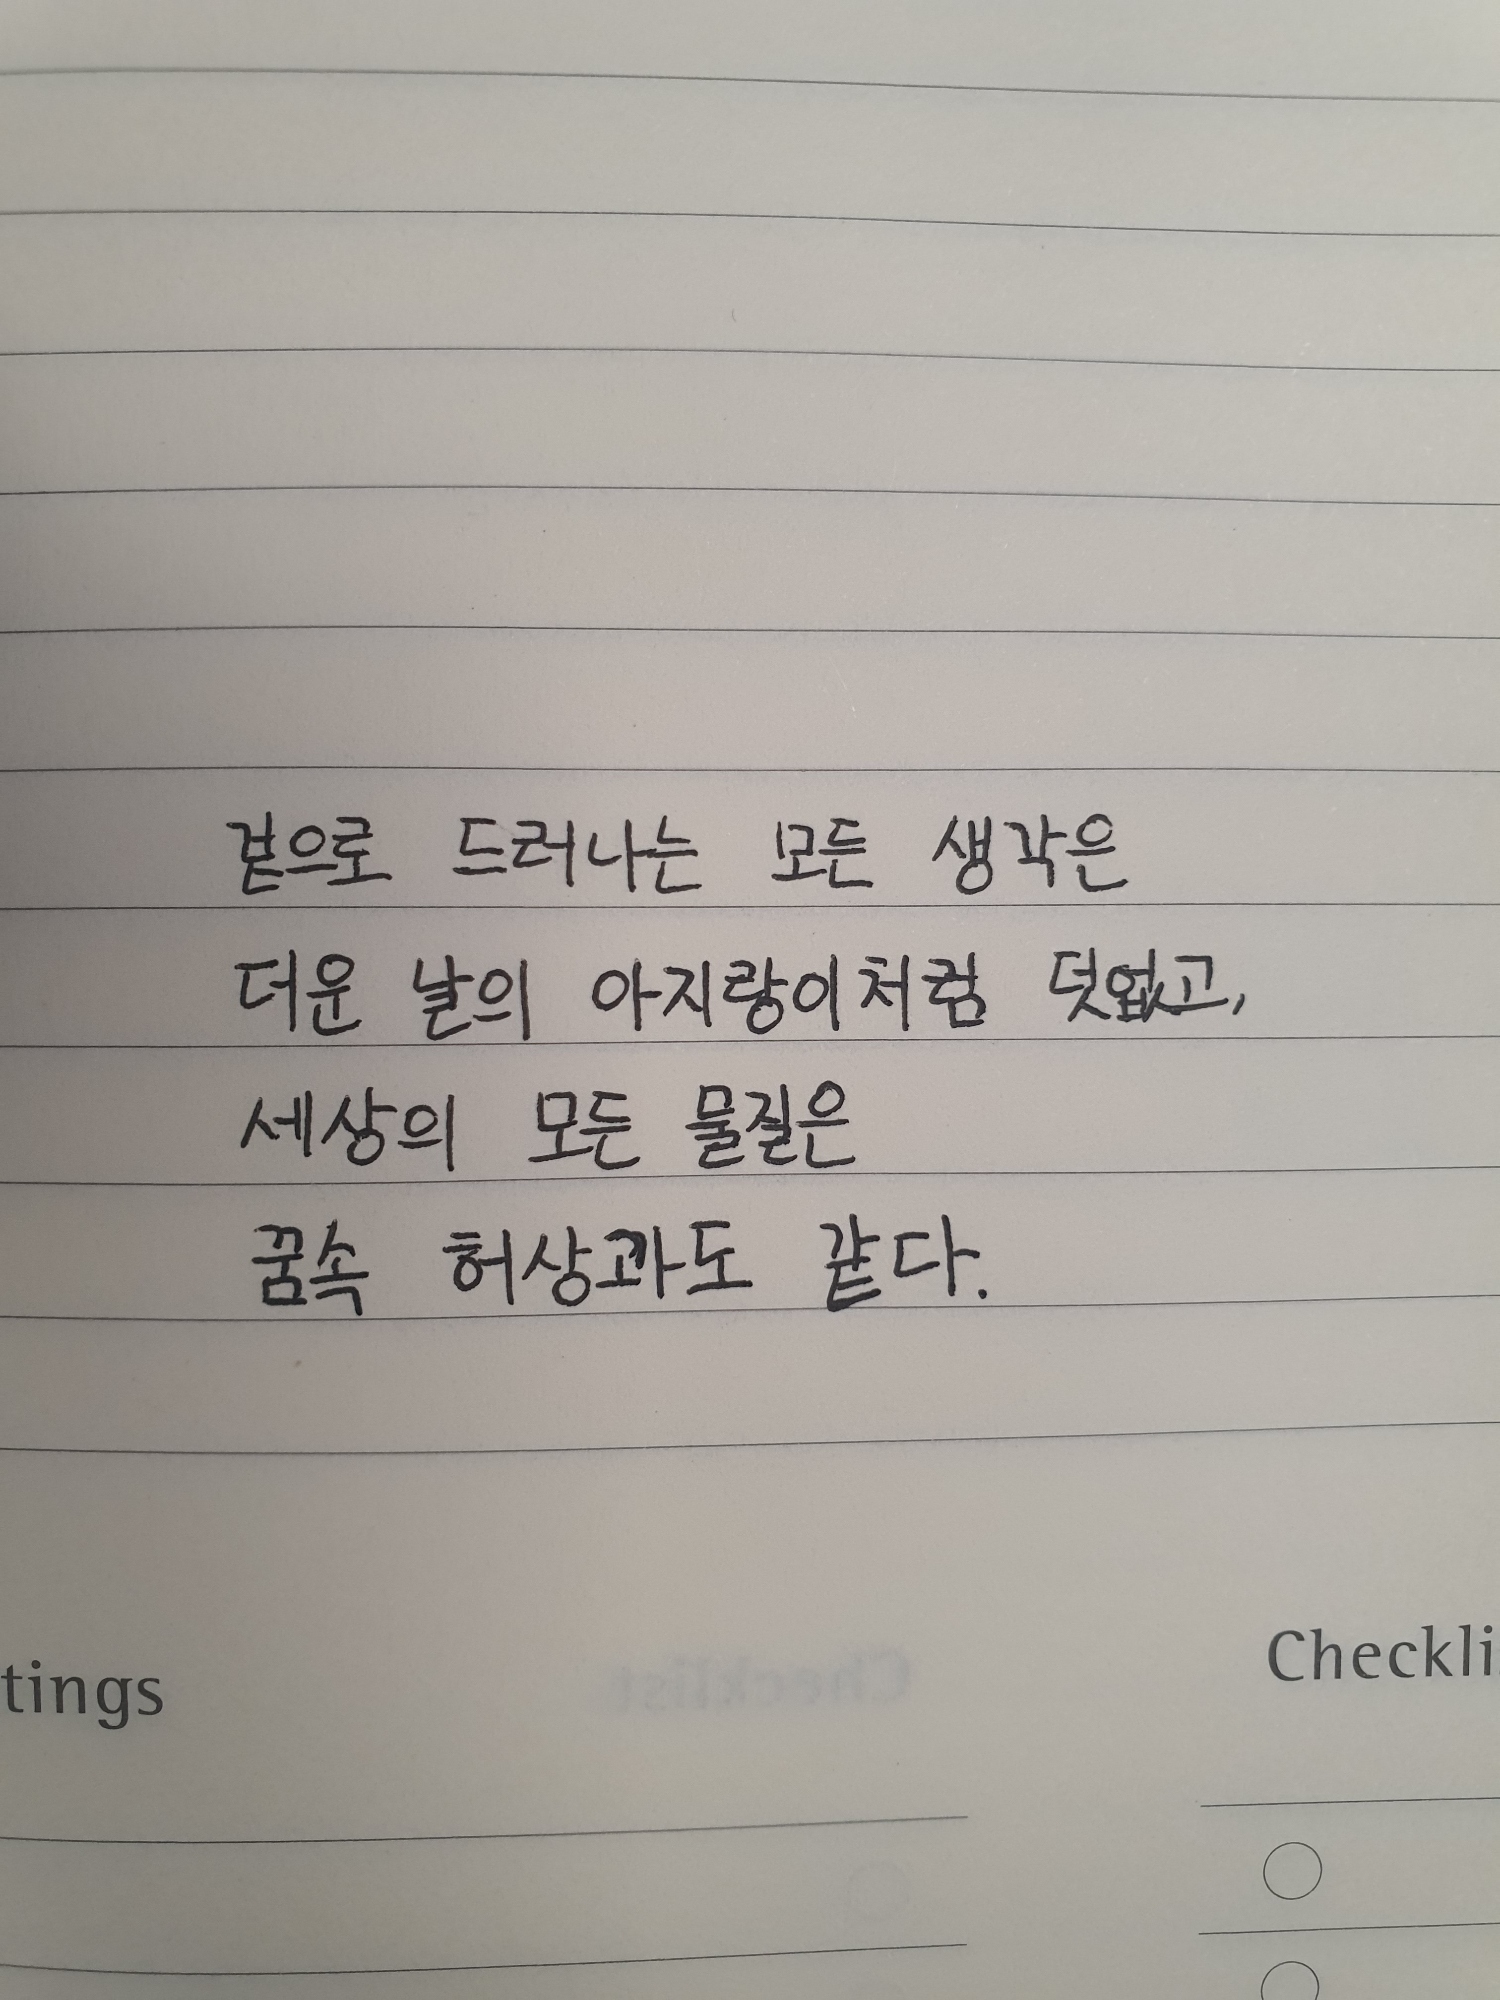 겉으로 드러나는 모든 생각은
더운 날의 아지랑이처럼 덧없고,
세상의 모든 물질은
꿈속 허상과도 같다.
tings
Checkli